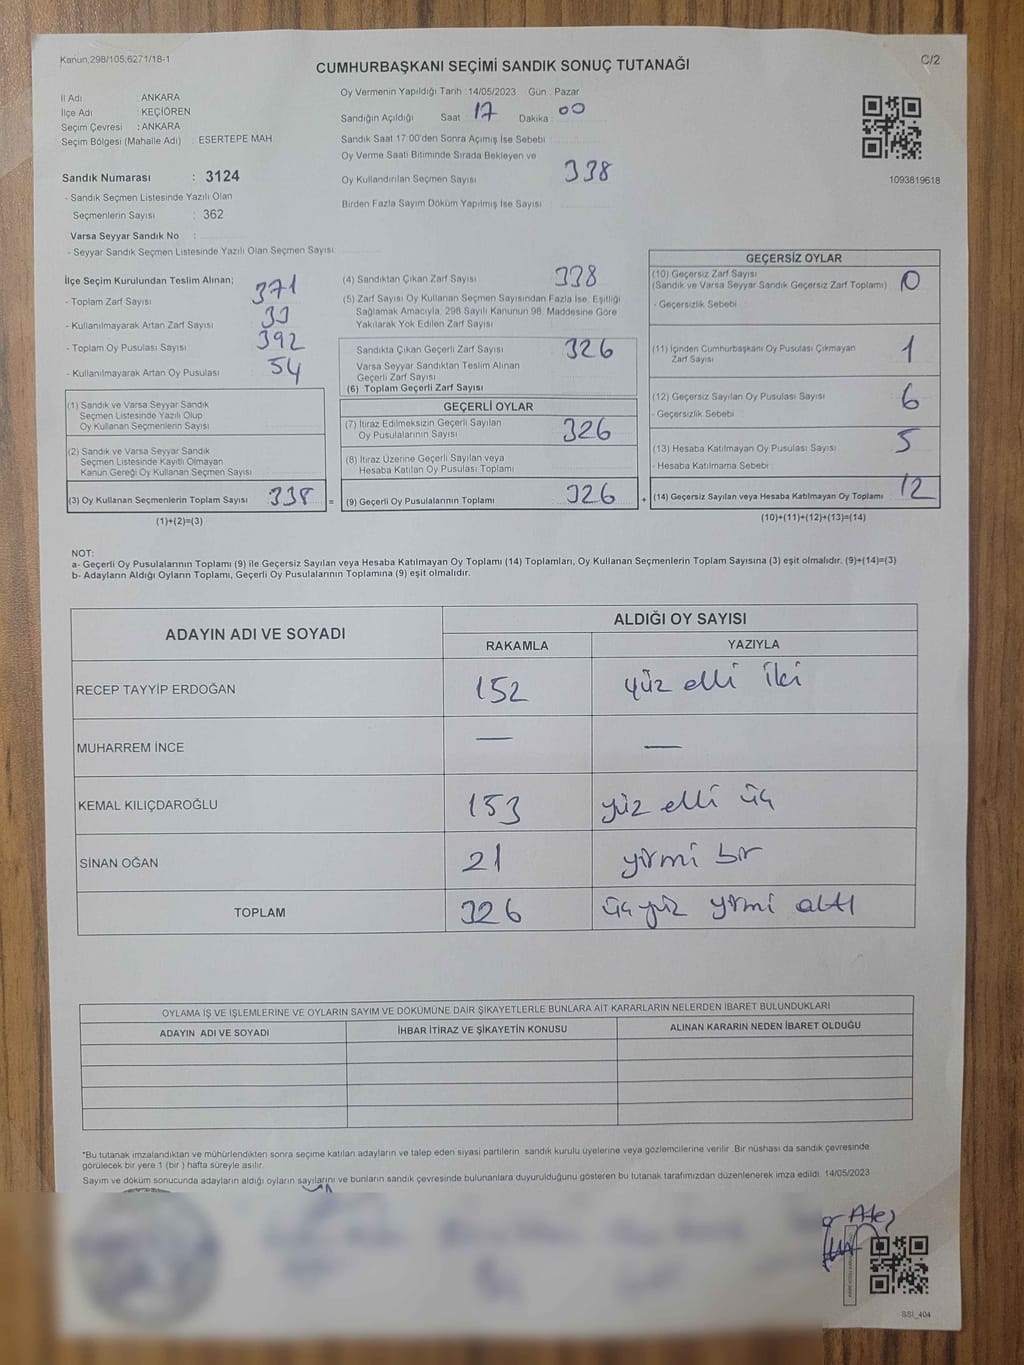 Kanun;298/105;6271/18-1
C/2
CUMHURBAŞKANI SEÇİMİ SANDIK SONUÇ TUTANAĞI
İl Adı : ANKARA
İlçe Adı : KEÇİÖREN
Seçim Çevresi : ANKARA
Seçim Bölgesi (Mahalle Adı) : ESERTEPE MAH
Sandık Numarası : 3124
- Sandık Seçmen Listesinde Yazılı Olan
Seçmenlerin Sayısı : 362
Varsa Seyyar Sandık No :
- Seyyar Sandık Seçmen Listesinde Yazılı Olan Seçmen Sayısı:
Oy Vermenin Yapıldığı Tarih :14/05/2023 Gün : Pazar
Sandığın Açıldığı Saat : 17 Dakika : 00
Sandık Saat 17:00'den Sonra Açımış İse Sebebi :
Oy Verme Saati Bitiminde Sırada Bekleyen ve
Oy Kullandırılan Seçmen Sayısı : 338
Birden Fazla Sayım Döküm Yapılmış İse Sayısı :
1093819618
İlçe Seçim Kurulundan Teslim Alınan;
- Toplam Zarf Sayısı : 371
- Kullanılmayarak Artan Zarf Sayısı : 33
- Toplam Oy Pusulası Sayısı : 392
- Kullanılmayarak Artan Oy Pusulası : 54
(1) Sandık ve Varsa Seyyar Sandık
Seçmen Listesinde Yazılı Olup
Oy Kullanan Seçmenlerin Sayısı :
(2) Sandık ve Varsa Seyyar Sandık
Seçmen Listesinde Kayıtlı Olmayan
Kanun Gereği Oy Kullanan Seçmen Sayısı :
(3) Oy Kullanan Seçmenlerin Toplam Sayısı : 338 =
(1)+(2)=(3)
(4) Sandıktan Çıkan Zarf Sayısı : 338
(5) Zarf Sayısı Oy Kullanan Seçmen Sayısından Fazla İse, Eşitliği
Sağlamak Amacıyla, 298 Sayılı Kanunun 98. Maddesine Göre
Yakılarak Yok Edilen Zarf Sayısı :
Sandıkta Çıkan Geçerli Zarf Sayısı : 326
Varsa Seyyar Sandıktan Teslim Alınan
Geçerli Zarf Sayısı :
(6) Toplam Geçerli Zarf Sayısı
GEÇERLİ OYLAR
(7) İtiraz Edilmeksizin Geçerli Sayılan
Oy Pusulalarının Sayısı : 326
(8) İtiraz Üzerine Geçerli Sayılan veya
Hesaba Katılan Oy Pusulası Toplamı :
(9) Geçerli Oy Pusulalarının Toplamı : 326 +
GEÇERSİZ OYLAR
(10) Geçersiz Zarf Sayısı
(Sandık ve Varsa Seyyar Sandık Geçersiz Zarf Toplamı) : 0
- Geçersizlik Sebebi :
(11) İçinden Cumhurbaşkanı Oy Pusulası Çıkmayan
Zarf Sayısı : 1
(12) Geçersiz Sayılan Oy Pusulası Sayısı : 6
- Geçersizlik Sebebi :
(13) Hesaba Katılmayan Oy Pusulası Sayısı : 5
- Hesaba Katılmama Sebebi :
(14) Geçersiz Sayılan veya Hesaba Katılmayan Oy Toplamı : 12
(10)+(11)+(12)+(13)=(14)
NOT:
a- Geçerli Oy Pusulalarının Toplamı (9) ile Geçersiz Sayılan veya Hesaba Katılmayan Oy Toplamı (14) Toplamları, Oy Kullanan Seçmenlerin Toplam Sayısına (3) eşit olmalıdır. (9)+(14)=(3)
b- Adayların Aldığı Oyların Toplamı, Geçerli Oy Pusulalarının Toplamına (9) eşit olmalıdır.
ADAYIN ADI VE SOYADI
ALDIĞI OY SAYISI
RAKAMLA YAZIYLA
RECEP TAYYİP ERDOĞAN 152 yüz elli iki
MUHARREM İNCE — —
KEMAL KILIÇDAROĞLU 153 yüz elli üç
SİNAN OĞAN 21 yirmi bir
TOPLAM 326 üç yüz yirmi altı
OYLAMA İŞ VE İŞLEMLERİNE VE OYLARIN SAYIM VE DÖKÜMÜNE DAİR ŞİKAYETLERLE BUNLARA AİT KARARLARIN NELERDEN İBARET BULUNDUKLARI
ADAYIN ADI VE SOYADI İHBAR İTİRAZ VE ŞİKAYETİN KONUSU ALINAN KARARIN NEDEN İBARET OLDUĞU
*Bu tutanak imzalandıktan ve mühürlendikten sonra seçime katılan adayların ve talep eden siyasi partilerin sandık kurulu üyelerine veya gözlemcilerine verilir. Bir nüshası da sandık çevresinde
görülecek bir yere 1 (bir) hafta süreyle asılır.
Sayım ve döküm sonucunda adayların aldığı oyların sayılarını ve bunların sandık çevresinde bulunanlara duyurulduğunu gösteren bu tutanak tarafımızdan düzenlenerek imza edildi. 14/05/2023
SSI_404